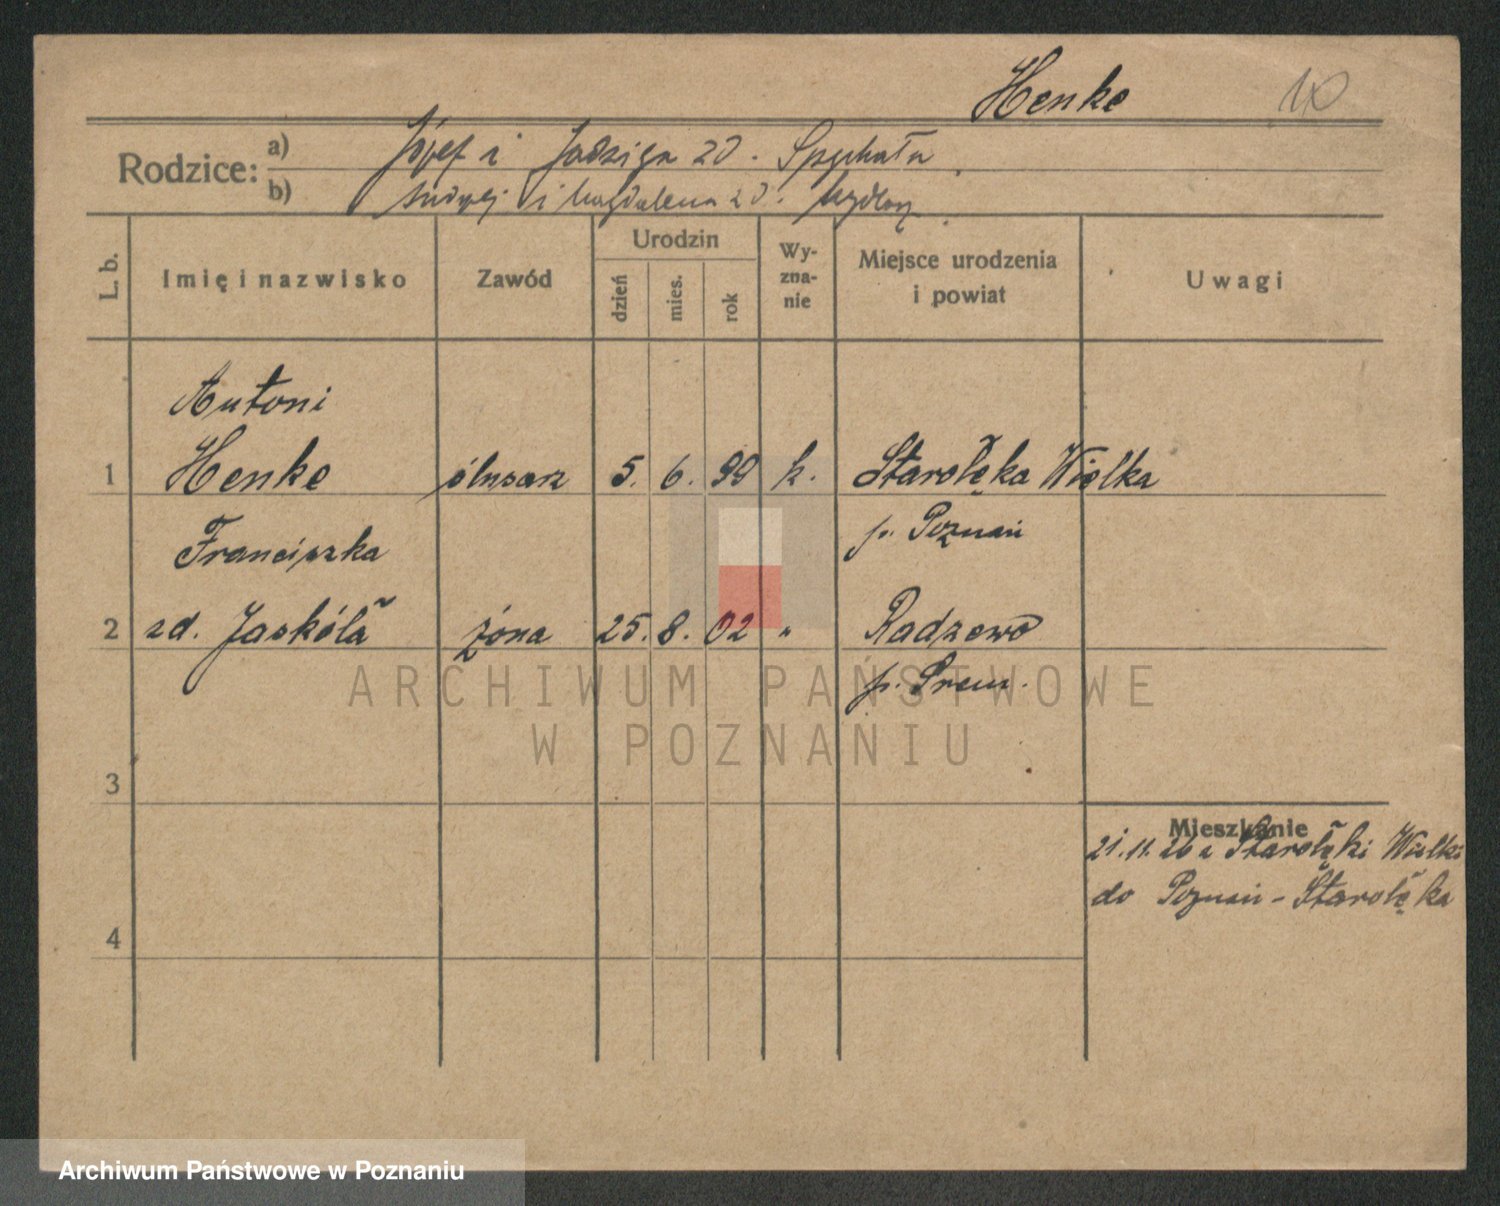 Henke 10
Rodzice: a) Józef i Jadwiga zd. Spychała
b) Andrzej i Magdalena zd.
L. b. Imię i nazwisko Zawód Urodzin dzień mies. rok Wyznanie Miejsce urodzenia i powiat Uwagi
Antoni
1 Henke ślusarz 5. 6. 99 k. Starołęka Wielka
p. Poznań
Franciszka
2 zd. Jaskóła żona 25. 8. 02 " Radzewo
p. Śrem.
3
Mieszkanie
21.11.26 z Starołęki Wielki
do Poznań - Starołęka
4
ARCHIWUM PAŃSTWOWE
W POZNANIU
Archiwum Państwowe w Poznaniu